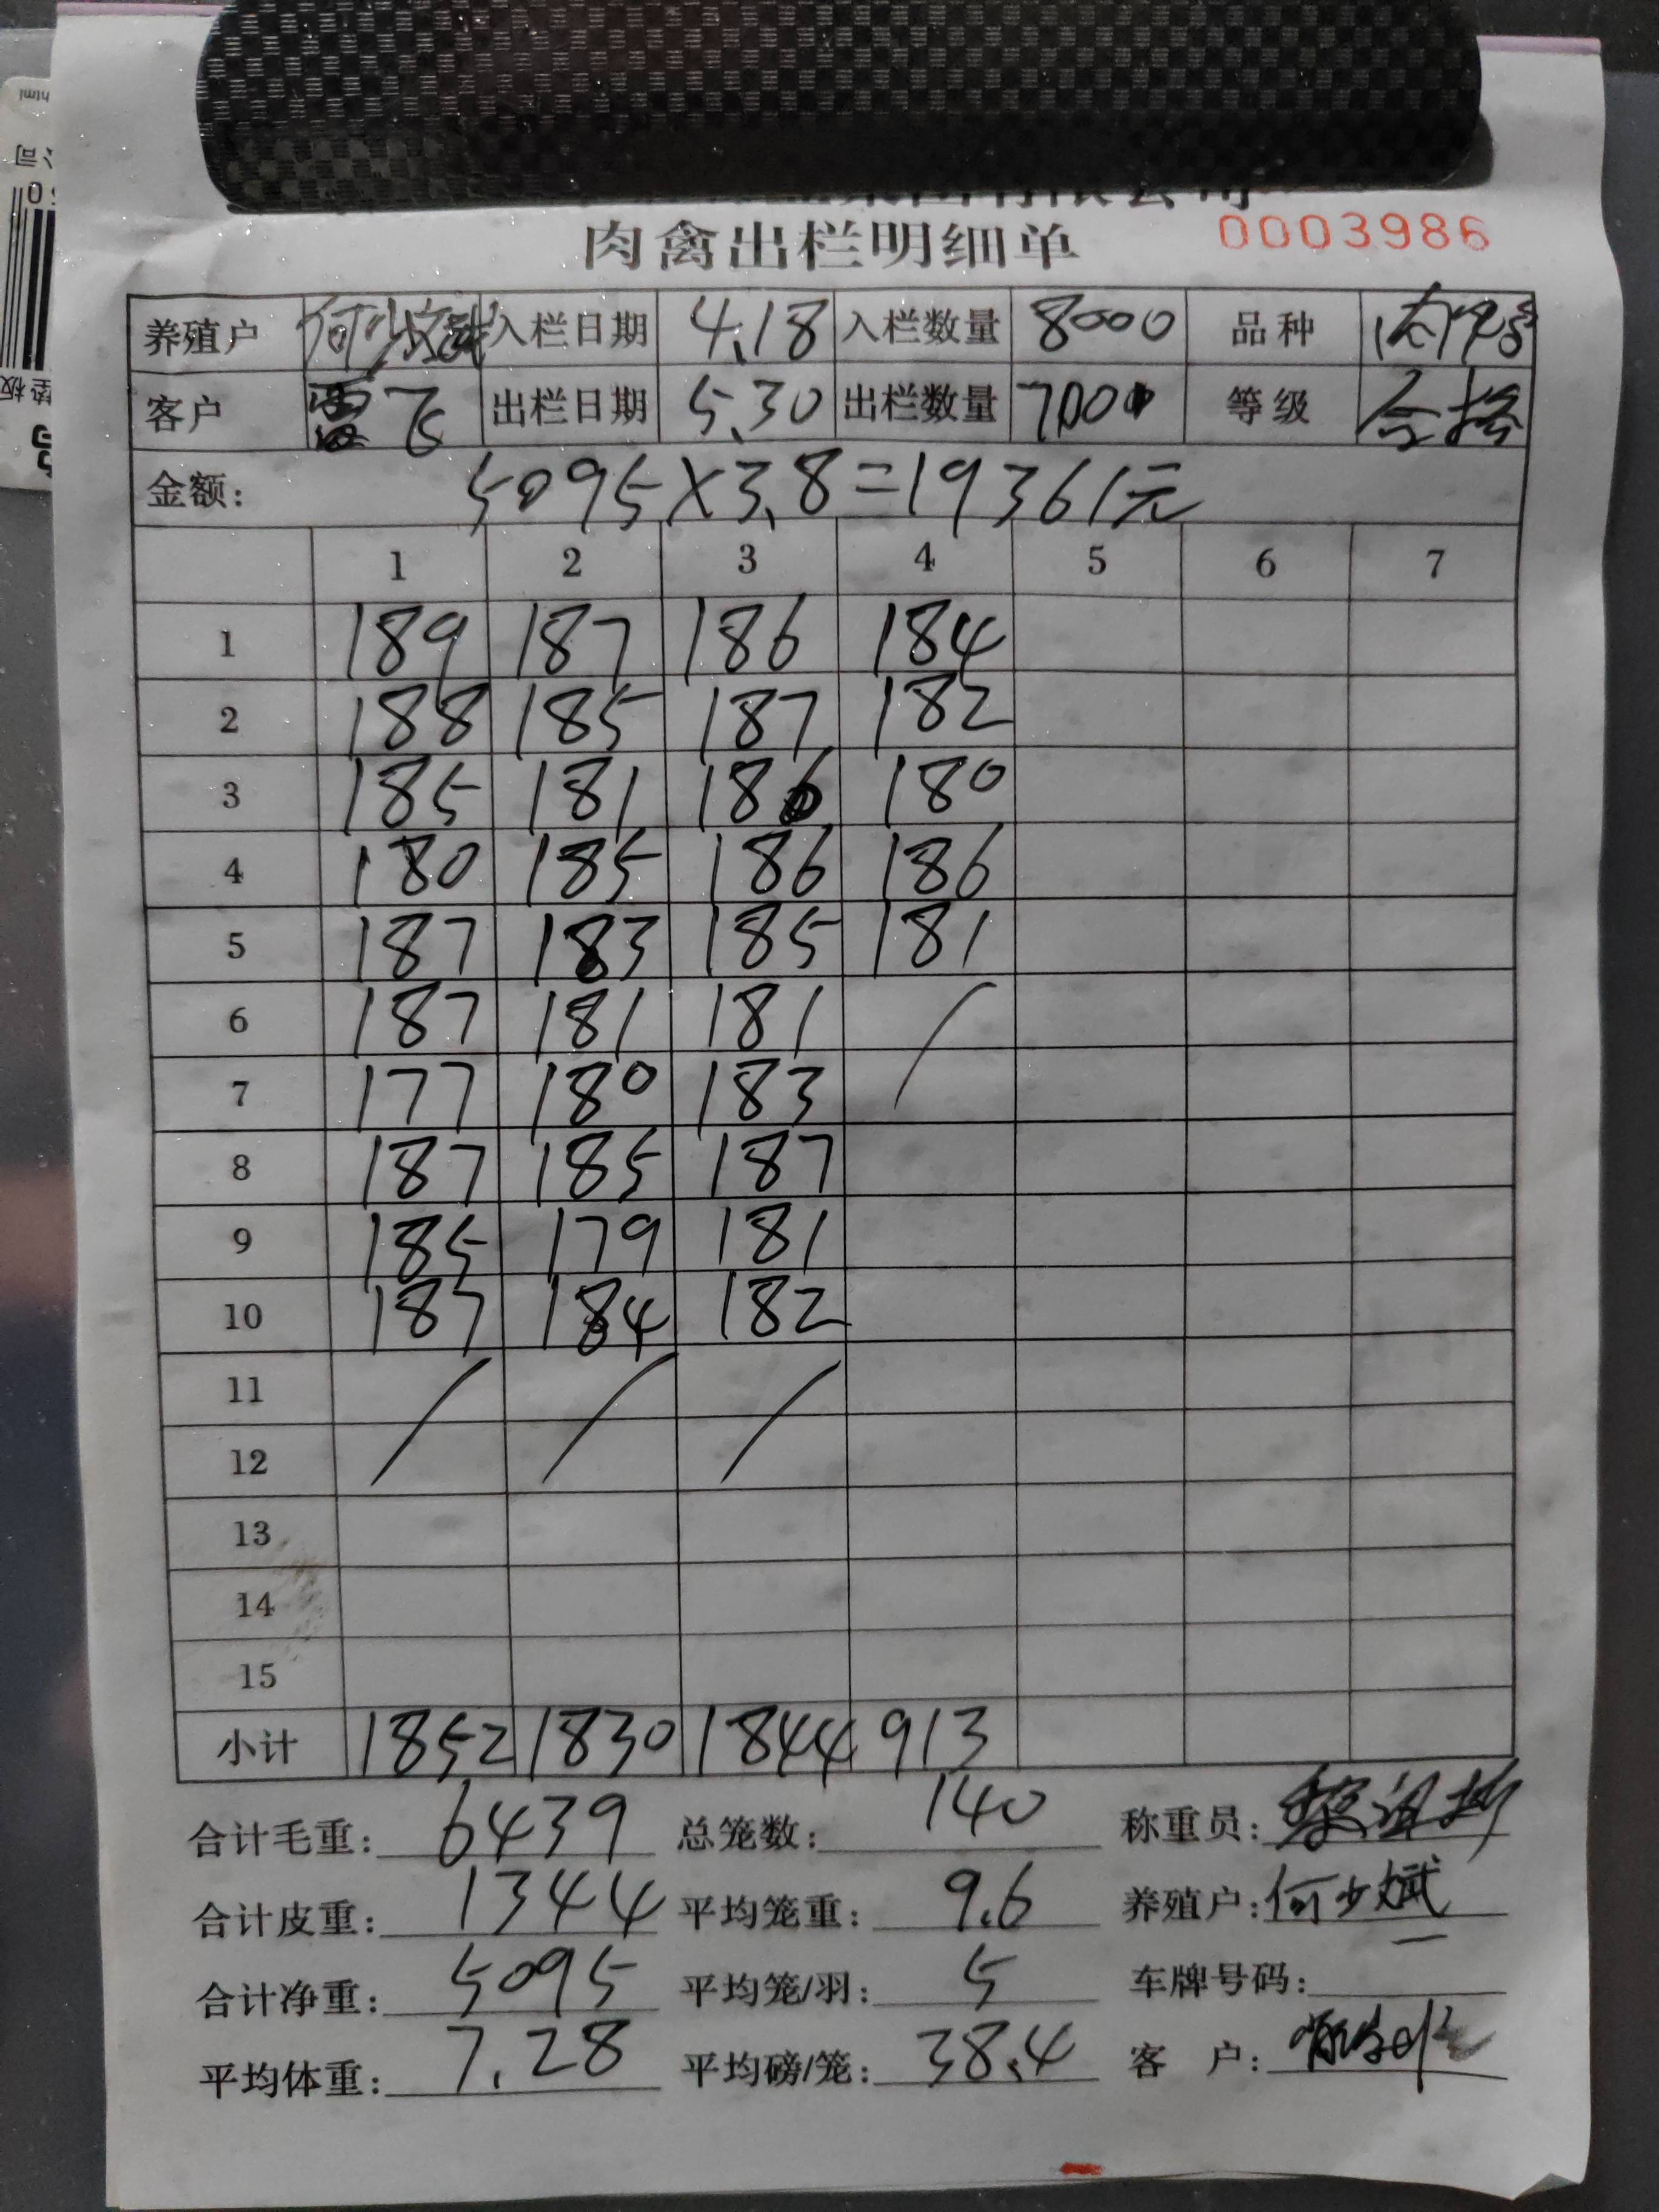 肉禽出栏明细单 0003986
养殖户 何少斌 入栏日期 4.18 入栏数量 8000 品种
客户 雷飞 出栏日期 5.30 出栏数量 7000 等级 合格
金额: 5095×3.8=19361元
1 2 3 4 5 6 7
1 189 187 186 184
2 188 185 187 182
3 185 181 186 180
4 180 185 186 186
5 187 183 185 181
6 187 181 181 /
7 177 180 183
8 187 185 187
9 185 179 181
10 187 184 182
11 / / /
12
13
14
15
小计 1852 1830 1844 913
合计毛重: 6439 总笼数: 140 称重员:
合计皮重: 1344 平均笼重: 9.6 养殖户: 何少斌
合计净重: 5095 平均笼/羽: 5 车牌号码: 一
平均体重: 7.28 平均磅/笼: 38.4 客户: